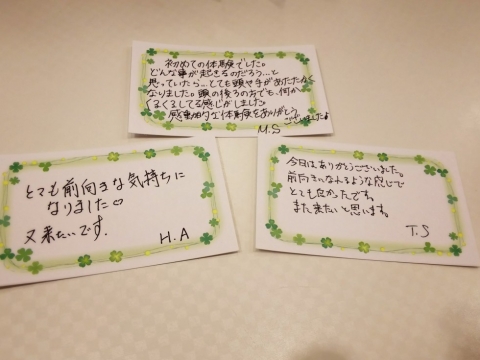 初めての体験でした。
どんな事が起きるのだろう…と
思っていたら…とても頭や手があたたかく
なりました。頭の後ろの方でも、何か
くるくるしてる感じがしました。
感動的な体験をありがとう
ございました♪
M.S
とても前向きな気持ちに
なりました♡
又来たいです。
H.A
今日はありがとうございました。
前向きになれるような感じで
とても良かったです。
また来たいと思います。
T.S